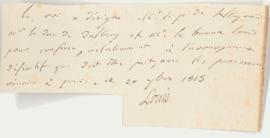 le roi a désigné Mr le pce de Talleyrand
Mr le duc de Dalberg et Mr le baron Louis
pour conférer préalablement à l'arrangement
définitif qui doit être fait avec les puissances
à paris. ce 20 7bre 1815
Louis